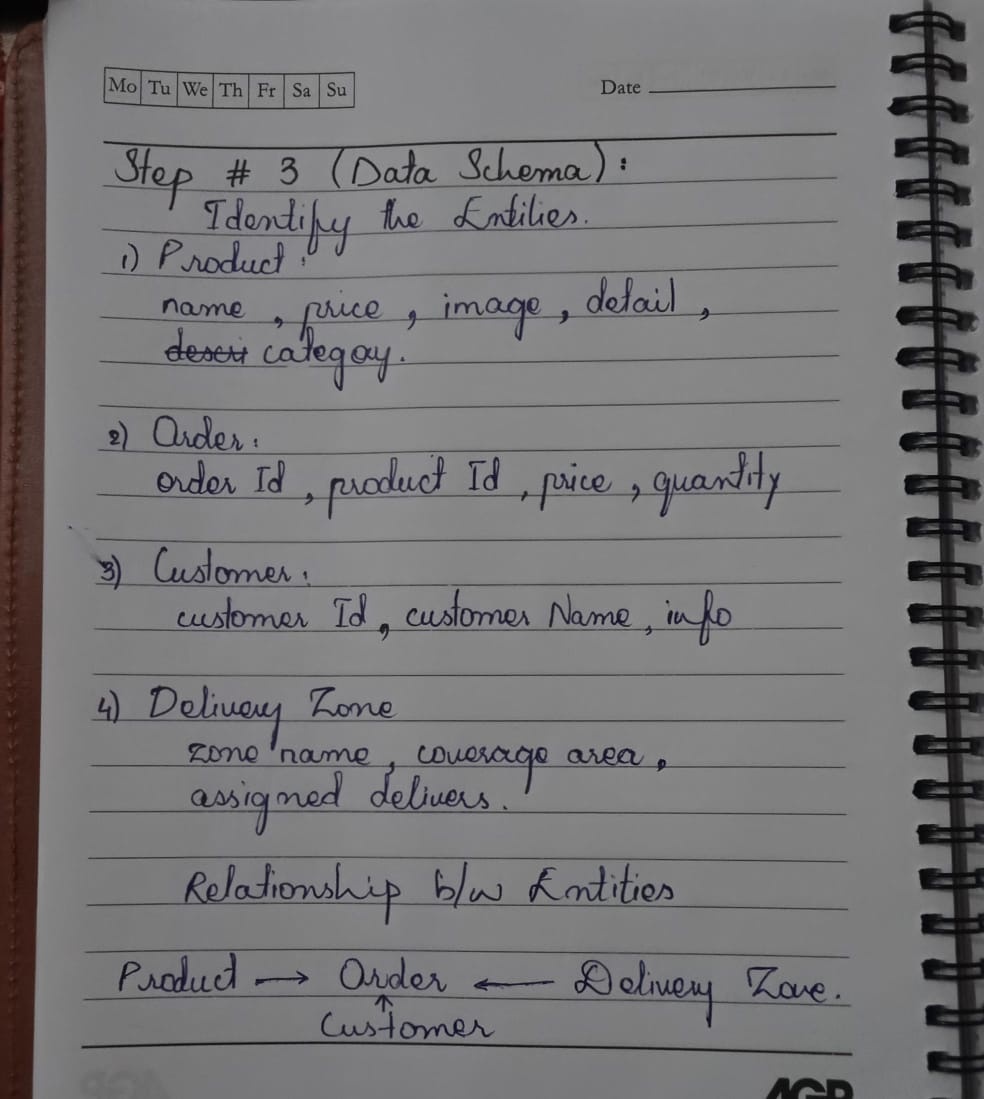 Mo Tu We Th Fr Sa Su
Date
Step # 3 (Data Schema):
Identify the Entilies.
1) Product:
name, price, image, detail,
descri categay.
2) Order:
order Id, product Id, price, quantity
3) Customer:
customer Id, customer Name, info
4) Delivery Zone
zone name, coverage area,
assigned delivers.
Relationship b/w Entities
Product → Order ← Delivery Zone.
↑
Customer
AGP